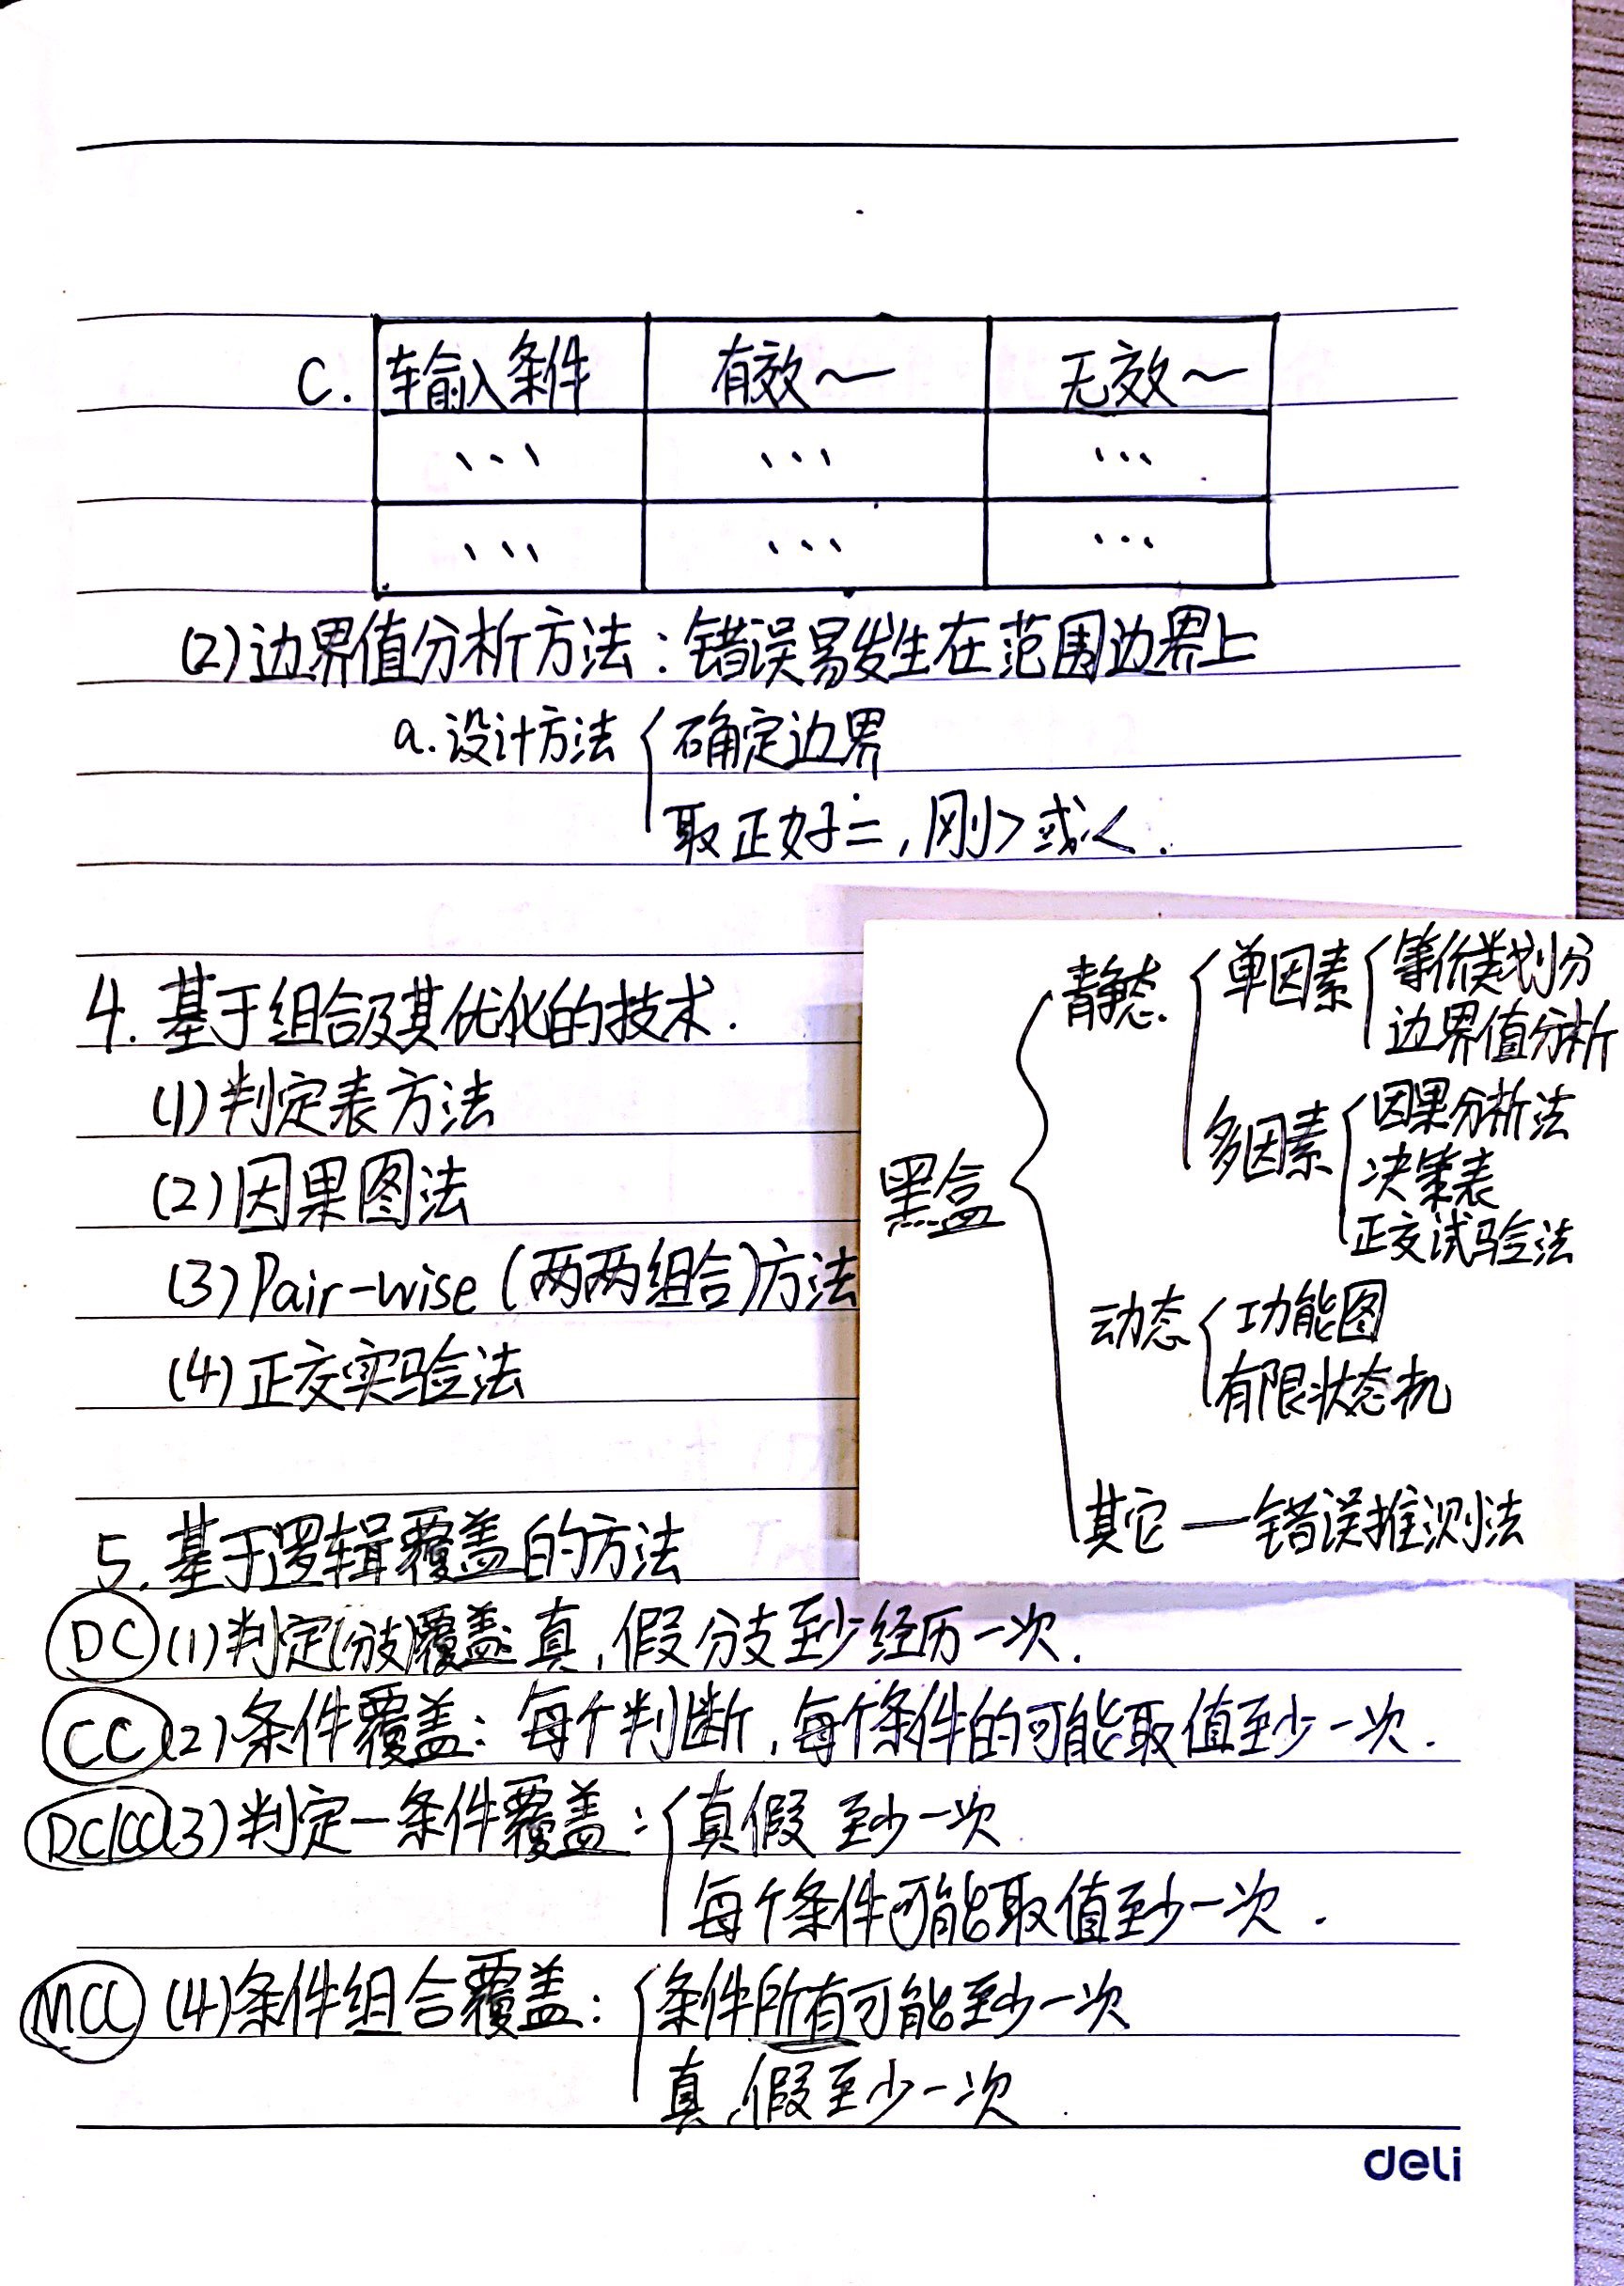 c. 输入条件 有效～ 无效～
... ... ...
... ... ...
(2)边界值分析方法：错误易发生在范围边界上
a.设计方法 确定边界
取正好=，刚>或<.
4.基于组合及其优化的技术.
(1)判定表方法
(2)因果图法
(3)Pair-wise(两两组合)方法
(4)正交实验法
黑盒
静态
单因素
等价类划分
边界值分析
多因素
因果分析法
决策表
正交试验法
动态
功能图
有限状态机
其它—错误推测法
5.基于逻辑覆盖的方法
DC (1)判定(分支)覆盖：真,假分支至少经历一次.
CC (2)条件覆盖：每个判断,每个条件的可能取值至少一次.
DC/CC (3)判定—条件覆盖：真假 至少一次
每个条件可能取值至少一次.
MCC (4)条件组合覆盖：条件所有可能至少一次
真,假至少一次.
deli